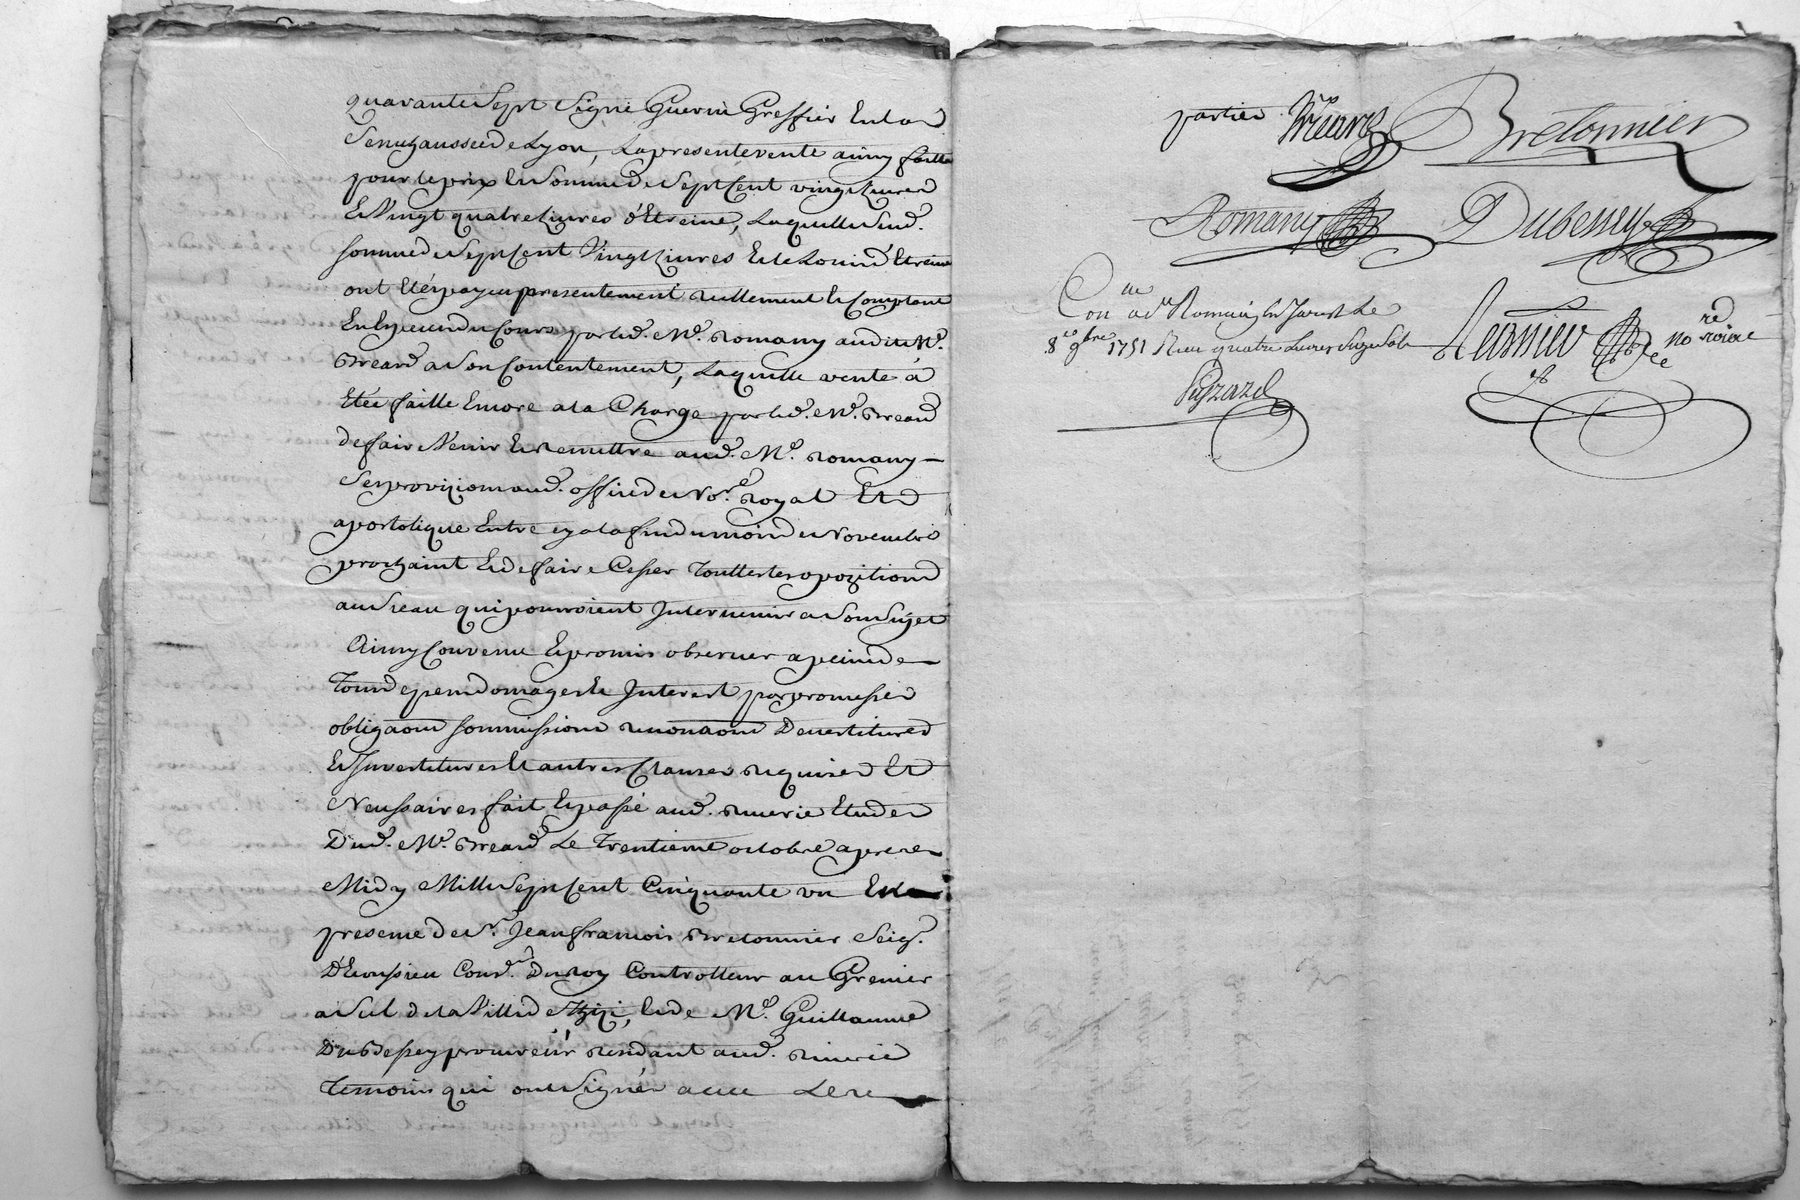 quarante Sept Signé Guerin Greffier En la d
Senechaussée de Lyon, La presente vente ainsy faitte
pour le prix Et Somme de Sept Cent vingt Livres
Et Vingt quatre Livres d'Etreine, Laquelle Sud.
Somme de Sept Cent Vingt Livres Et le Louis d'Etreine
ont Eté payes presentement reellement Et Comptant
En Especes du Cours par led. Me. Romany audit Me.
Breard a Son Contentement, Laquelle vente a
Etée faitte Encore a la Charge par led. Me. Breard
de faire Venir Et remettre aud. Me. Romany
Ses provizions aud. office de No.re Royal Et
apostolique Entre cy a la fin du mois de Novembre
prochaint Et de faire Cesser Touttes les opozitions
au Sceau qui pourroient Intervenir a Son Sujet
Ainsy Convenu Et promis observer a peine de
Tous depens domages Et Interest par promesses
obligaons Soumissions renonaons Devestitures
Et Investitures Et autres Clauses requises Et
Necessaires fait Et passé aud. Etude
Dud. Me. Breard Le Trentieme octobre apres
Midy Mille Sept Cent Cinquante un En
presence de Sr. Jean francois Bretonnier Seigr.
Conser. du Roy Controlleur au Grenier
a Sel de la Ville de, Et de Me. Guillaume
Dubessey procureur residant aud.
Temoins qui ont Signés avec Les
parties Breard Bretonnier
Romany Dubessey
Con.lle ad Romain En Jarest Le
8e 9bre 1751 Reçu quatre Livres Seize Sols
Mesnier No.re Roial